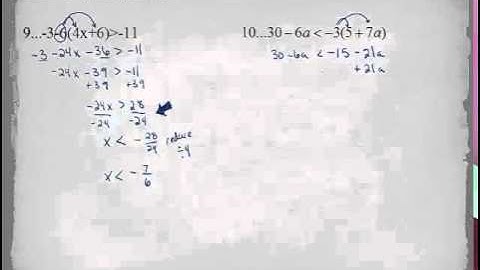 9...-3-6(4x+6)>-11
-3 -24x -36 > -11
-24x -39 > -11
+39 +39
-24x > 28
-24 -24
x < -28/24 reduce ÷4
x < -7/6
10...30 – 6a < –3(5 + 7a)
30 -6a < -15 -21a
+21a